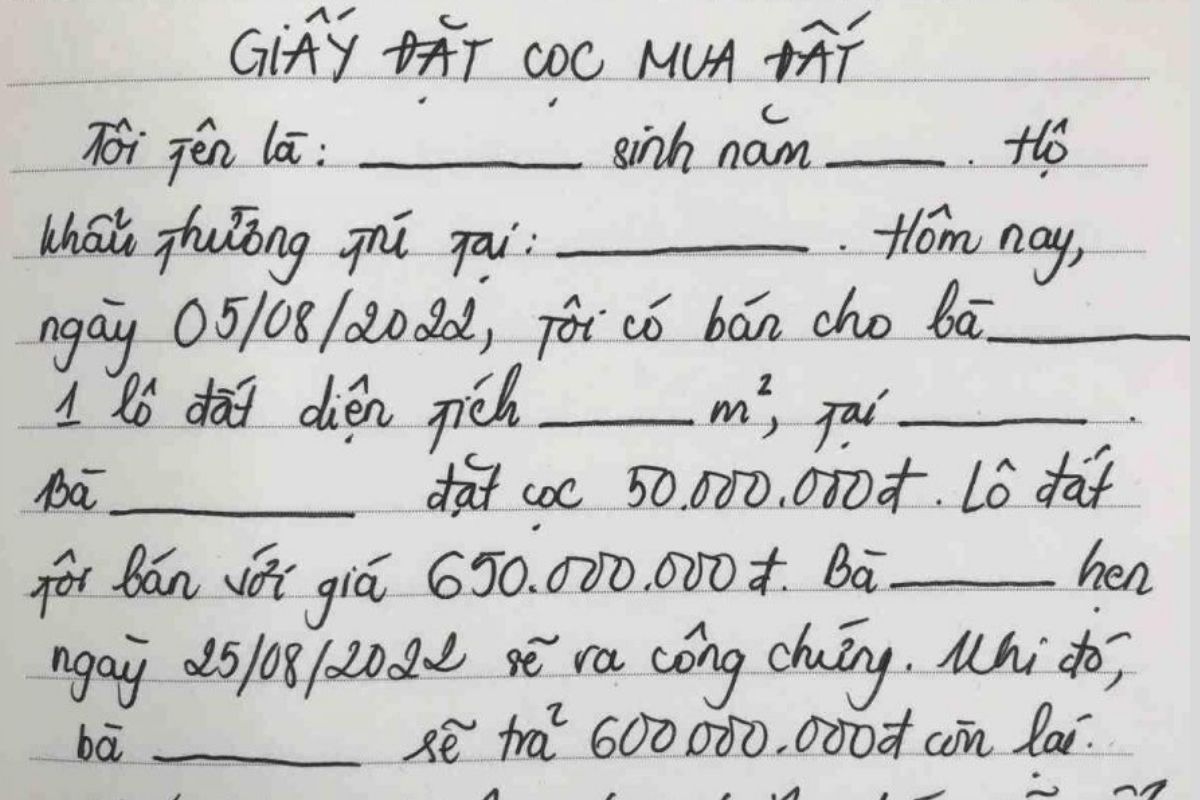 GIẤY ĐẶT CỌC MUA ĐẤT
Tôi tên là: __________ sinh năm _____. Hộ
khẩu thường trú tại: __________. Hôm nay,
ngày 05/08/2022, tôi có bán cho bà __________
1 lô đất diện tích _______ m², tại ________.
Bà __________ đặt cọc 50.000.000đ. Lô đất
tôi bán với giá 650.000.000đ. Bà _______ hẹn
ngày 25/08/2022 sẽ ra công chứng. Khi đó,
bà _________ sẽ trả 600.000.000đ còn lại.